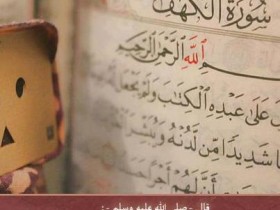 سُورَةُ الْكَهْفِ
اللَّهِ الرَّحْمَٰنِ الرَّحِيمِ
عَلَىٰ عَبْدِهِ الْكِتَٰبَ وَلَمْ يَجْعَل
شَدِيدًا مِّن لَّدُنْهُ وَيُبَشِّرَ
أَنَّ لَهُمْ أَجْرًا
قال - صلى الله عليه وسلم - :